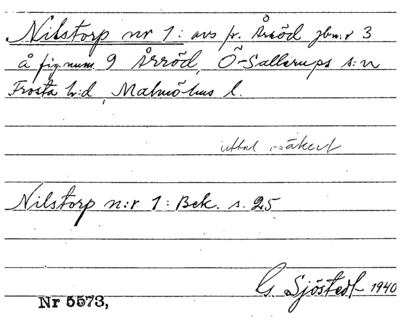 Nilstorp nr 1: avs fr. Årröd jbn:r 3
å fig.num. 9 Årröd, Ö-Sallerups s:n
Frosta h:d, Malmöhus l.
uttal osäkert
Nilstorp n:r 1: Bek. s. 25
G. Sjöstedt 1940
Nr 5573,